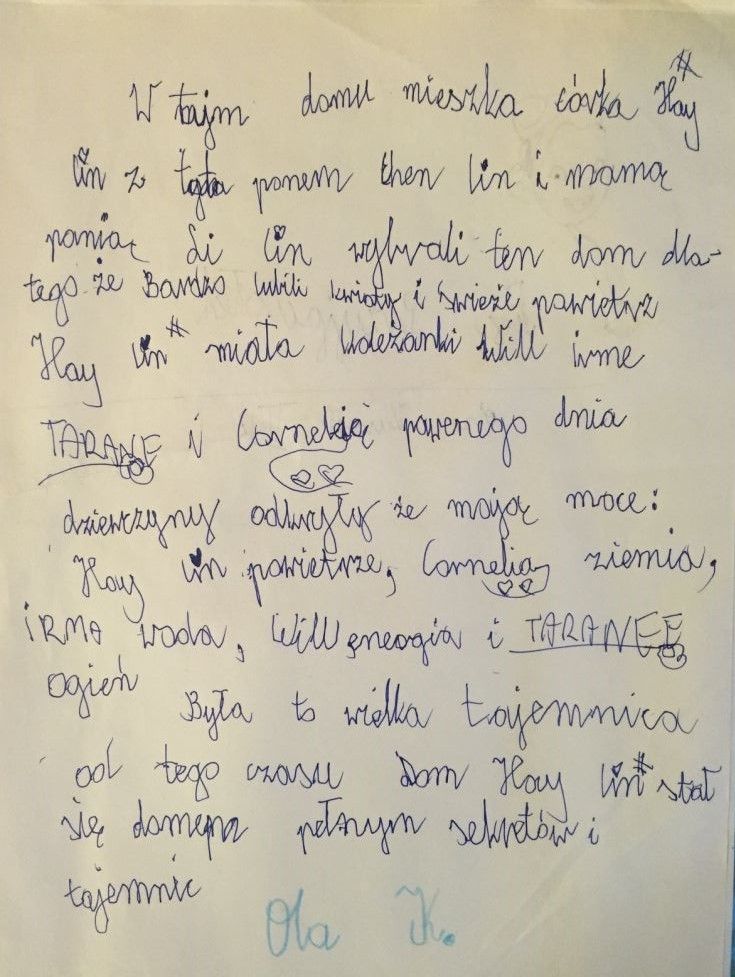 W tajm domu mieszka córka Hay
lin z tatą panem chen lin i mamą
panią Li lin wybrali ten dom dla-
tego że Bardzo lubili kwiaty i świeże powietrz
Hay lin miała koleżanki Will irme
TARANE i Cornelię pewnego dnia
dziewczyny odkryły że mają moce:
Hay lin powietrze, Cornelia, ziemia,
iRMA woda, Will energia i TARANEE
ogień
Była to wielka tajemnica
od tego czasu Dom Hay lin stał
się domem pełnym sekretów i
tajemnic
Ola K.